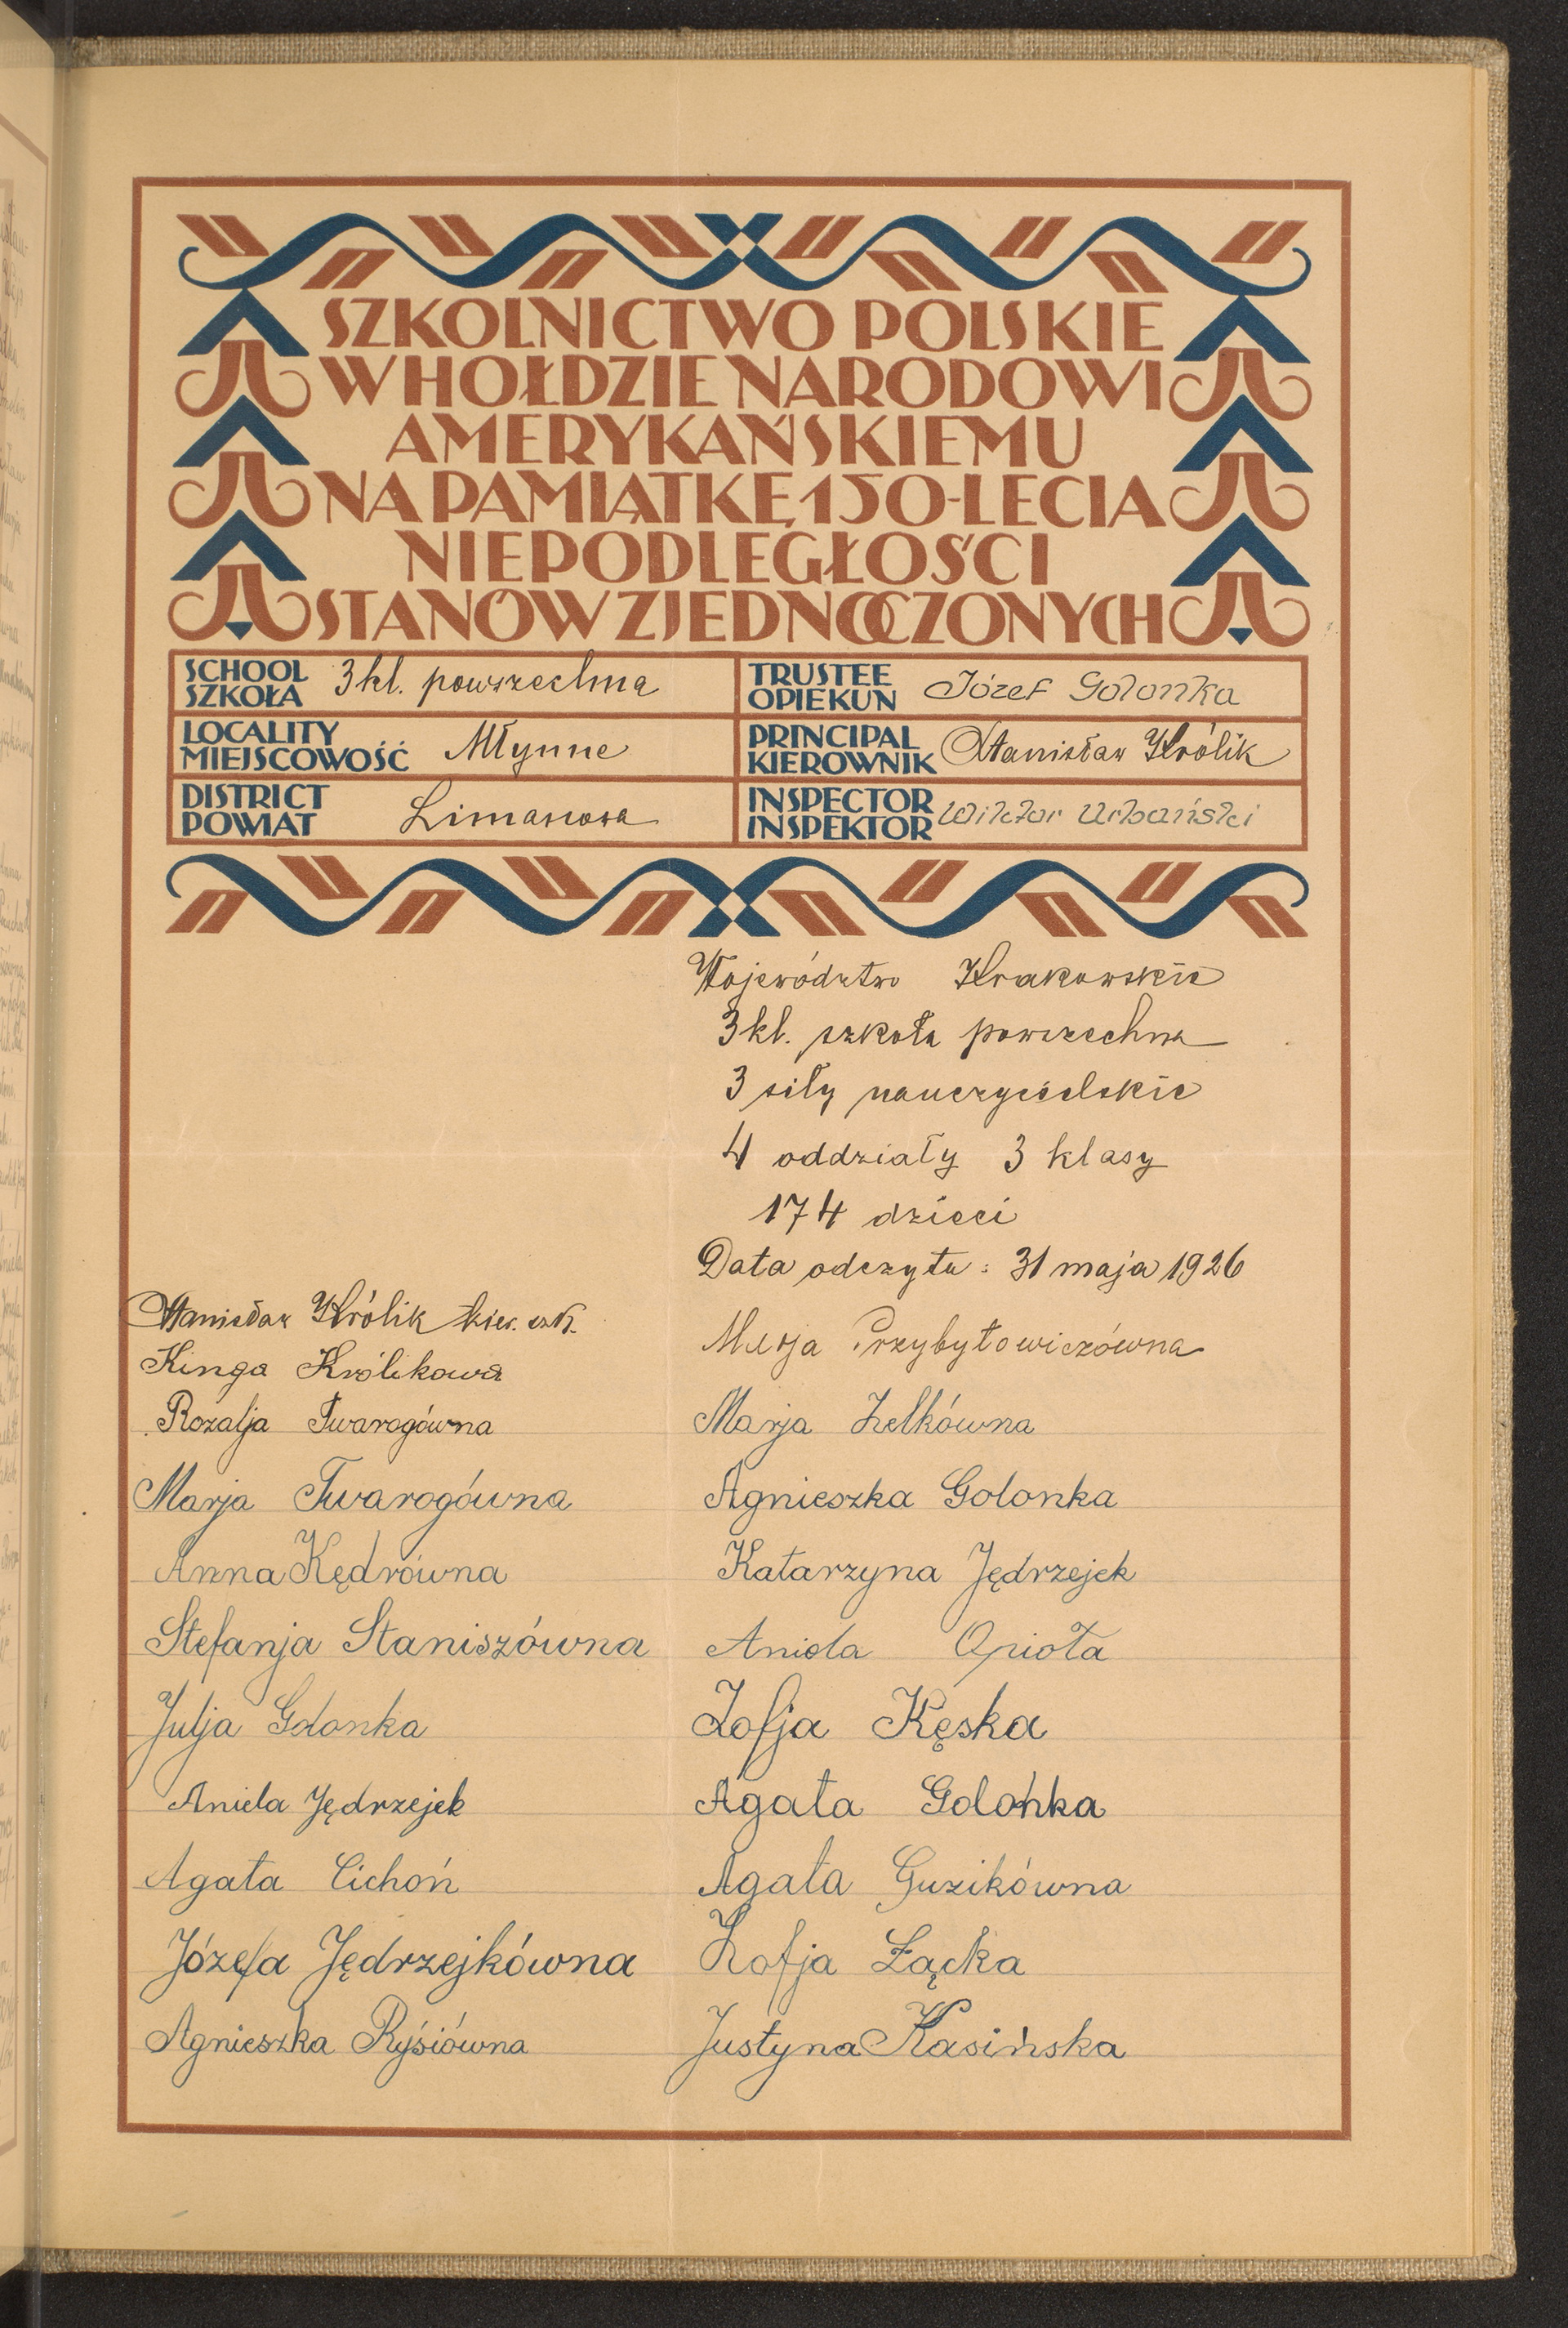 SZKOLNICTWO POLSKIE
W HOŁDZIE NARODOWI
AMERYKAŃSKIEMU
NA PAMIĄTKĘ 150-LECIA
NIEPODLEGŁOŚCI
STANÓW ZJEDNOCZONYCH
SCHOOL
SZKOŁA 3 kl. powszechna
TRUSTEE
OPIEKUN Józef Golonka
LOCALITY
MIEJSCOWOŚĆ Młynne
PRINCIPAL
KIEROWNIK Stanisław Królik
DISTRICT
POWIAT Limanowa
INSPECTOR
INSPEKTOR Wiktor Urbański
Województwo Krakowskie
3 kl. szkoła powszechna
3 siły nauczycielskie
4 oddziały 3 klasy
174 dzieci
Data odczytu: 31 maja 1926
Stanisław Królik kier. szk.
Kinga Królikowa
Rozalja Twarogówna
Marja Twarogówna
Anna Kędrówna
Stefanja Staniszówna
Julja Golonka
Aniela Jędrzejek
Agata Cichoń
Józefa Jędrzejkówna
Agnieszka Ryśiówna
Marja Przybyłowiczówna
Marja Zelkówna
Agnieszka Golonka
Katarzyna Jędrzejek
Aniela Opioła
Zofja Kęska
Agata Golońka
Agata Guzikówna
Zofja Łącka
Justyna Kasińska